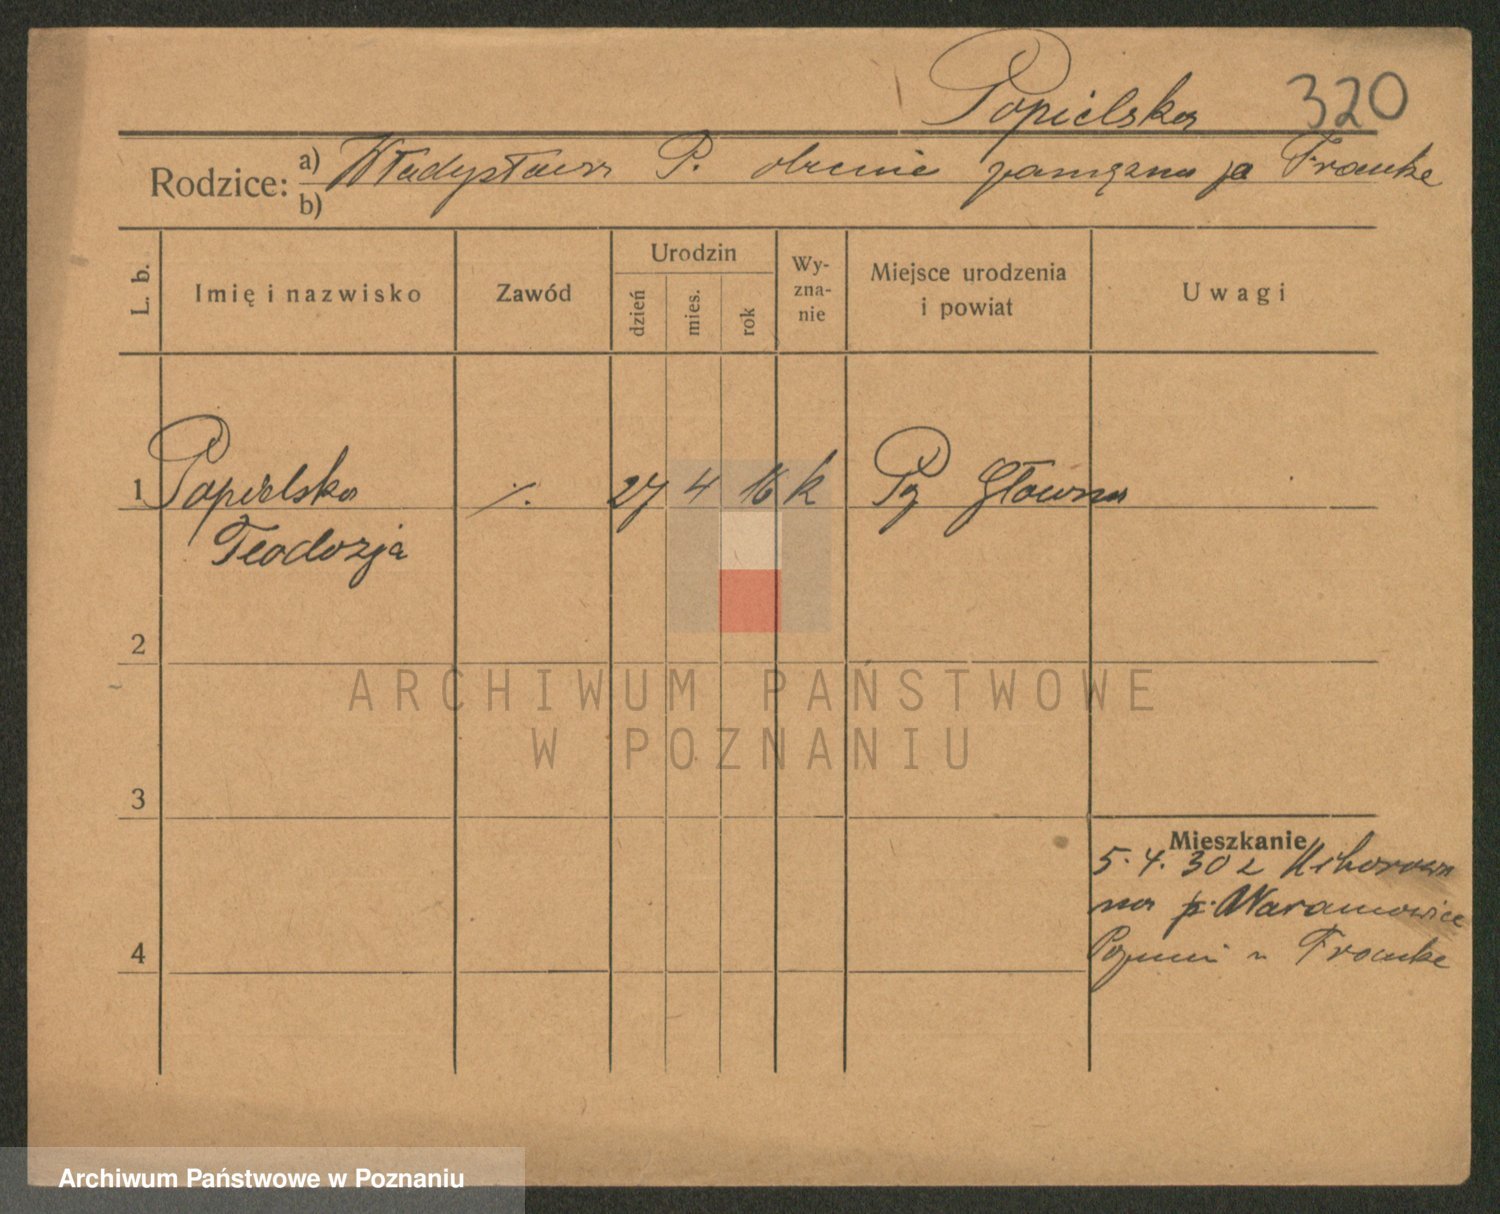 Popielska 320
Rodzice: a) Władysława P. obecnie zamężna ja Franke
b)
L. b.
Imię i nazwisko
Zawód
Urodzin
dzień
mies.
rok
Wy-
zna-
nie
Miejsce urodzenia
i powiat
Uwagi
1 Popielska ·/. 27 4 16 k Pz Główna
Teodozja
2
3
4
Mieszkanie
5.4.30 z
na p. Naramowice
u Franke
ARCHIWUM PAŃSTWOWE
W POZNANIU
Archiwum Państwowe w Poznaniu